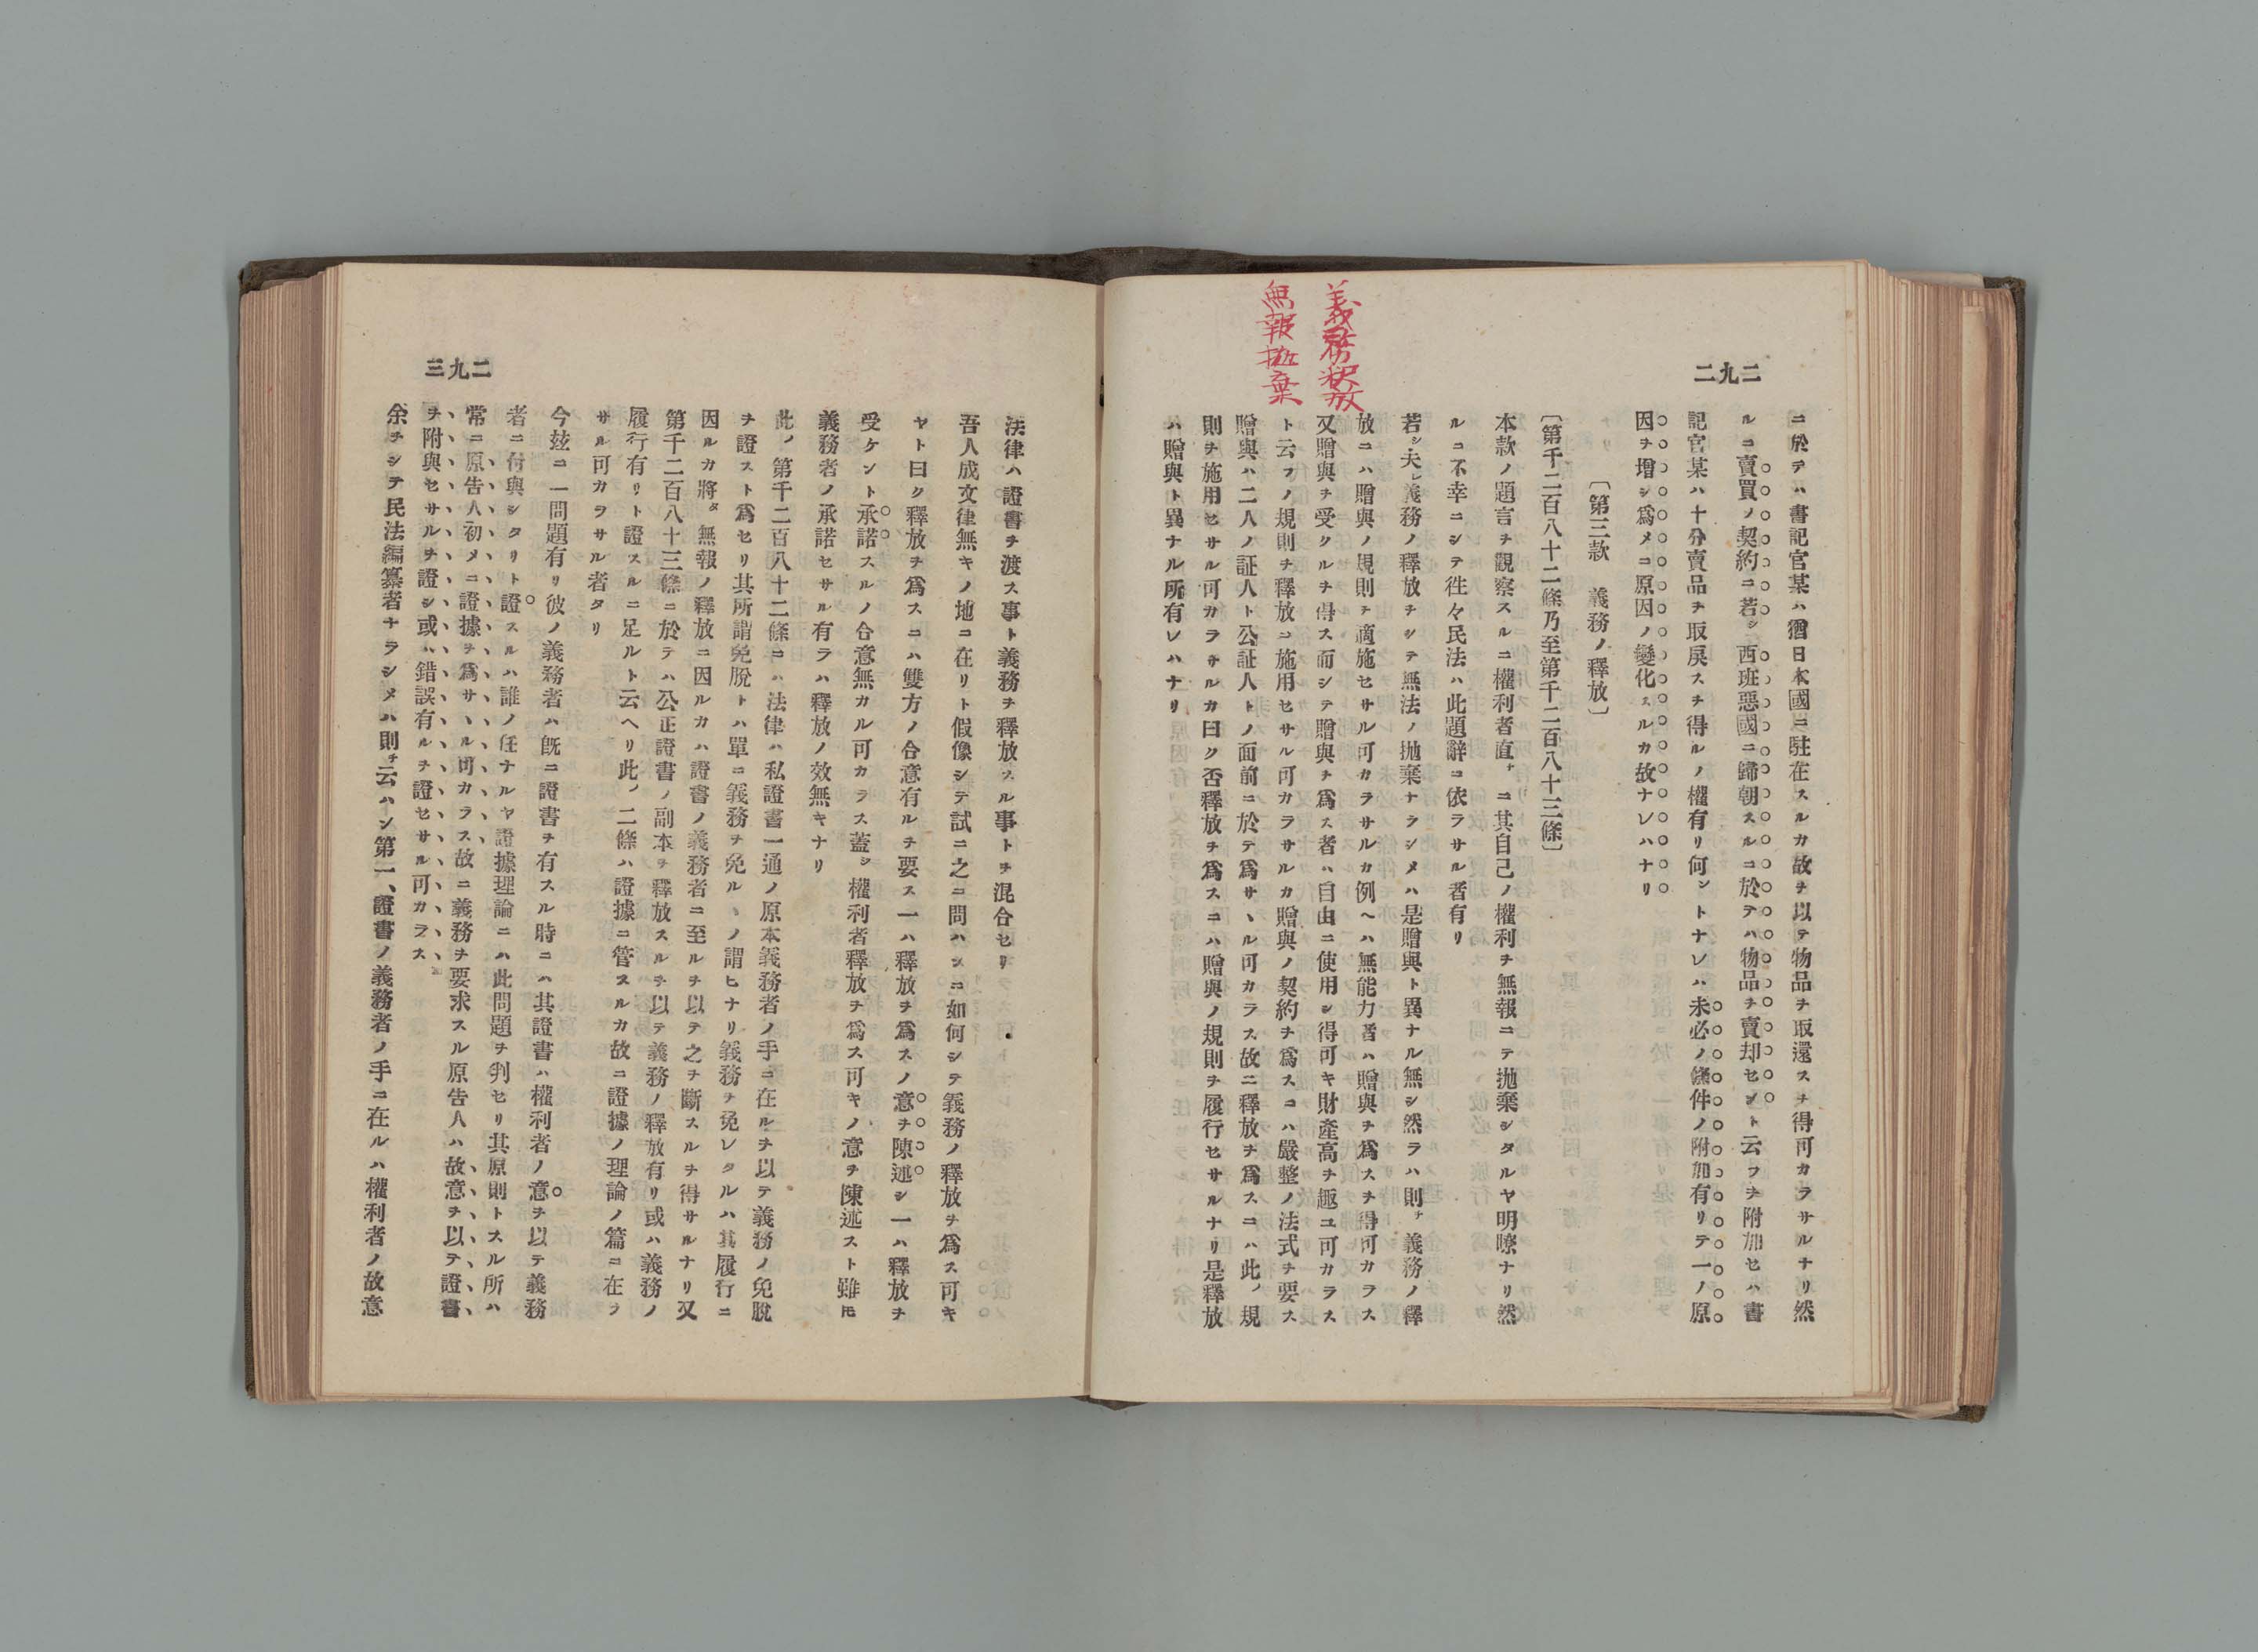 二九二
義務釈放
無報抛棄
ニ於テハ書記官某ハ猶日本國ニ駐在スルカ故ヲ以テ物品ヲ取還スヲ得可カラサルナリ然
ルニ賣買ノ契約ニ若シ西班惡國ニ歸朝スルニ於テハ物品ヲ賣却セント云フヲ附加セハ書
記官某ハ十分賣品ヲ取戻スヲ得ルノ權有リ何ントナレハ未必ノ條件ノ附加有リテ一ノ原
因ヲ增シ爲メニ原因ノ變化スルカ故ナレハナリ
〔第三款　義務ノ釋放〕
〔第千二百八十二條乃至第千二百八十三條〕
本款ノ題言ヲ觀察スルニ權利者直チニ其自己ノ權利ヲ無報ニテ抛棄シタルヤ明瞭ナリ然
ルニ不幸ニシテ徃々民法ハ此題辭ニ依ラサル者有リ
若シ夫レ義務ノ釋放ヲシテ無法ノ抛棄ナラシメハ是贈與ト異ナル無シ然ラハ則チ義務ノ釋
放ニハ贈與ノ規則ヲ適施セサル可カラサルカ例ヘハ無能力者ハ贈與ヲ爲スヲ得可カラス
又贈與ヲ受クルヲ得ス而シテ贈與ヲ爲ス者ハ自由ニ使用シ得可キ財產高ヲ趣ユ可カラス
ト云フノ規則ヲ釋放ニ施用セサル可カラサルカ贈與ノ契約ヲ爲スニハ嚴整ノ法式ヲ要ス
贈與ハ二人ノ証人ト公証人トノ面前ニ於テ爲サヽル可カラス故ニ釋放ヲ爲スニハ此ノ規
則ヲ施用セサル可カラサルカ曰ク否釋放ヲ爲スニハ贈與ノ規則ヲ履行セサルナリ是釋放
ハ贈與ト異ナル所有レハナリ
二九三
法律ハ證書ヲ渡ス事ト義務ヲ釋放スル事トヲ混合セリ
吾人成文律無キノ地ニ在リト假像シテ試ニ之ニ問ハンニ如何シテ義務ノ釋放ヲ爲ス可キ
ヤト曰ク釋放ヲ爲スニハ雙方ノ合意有ルヲ要ス一ハ釋放ヲ爲スノ意ヲ陳述シ一ハ釋放ヲ
受ケント承諾スルノ合意無カル可カラス蓋シ權利者釋放ヲ爲ス可キノ意ヲ陳述スト雖𪜈
義務者ノ承諾セサル有ラハ釋放ノ效無キナリ
此ノ第千二百八十二條ニハ法律ハ私證書一通ノ原本義務者ノ手ニ在ルヲ以テ義務ノ免脫
ヲ證スト爲セリ其所謂免脫トハ單ニ義務ヲ免ルヽノ謂ヒナリ義務ヲ免レタルハ其履行ニ
因ルカ將タ無報ノ釋放ニ因ルカハ證書ノ義務者ニ至ルヲ以テ之ヲ斷スルヲ得サルナリ又
第千二百八十三條ニ於テハ公正證書ノ副本ヲ釋放スルヲ以テ義務ノ釋放有リ或ハ義務ノ
履行有リト證スルニ足ルト云ヘリ此ノ二條ハ證據ニ管スルカ故ニ證據ノ理論ノ篇ニ在ラ
サル可カラサル者タリ
今玆ニ一問題有リ彼ノ義務者ハ旣ニ證書ヲ有スル時ニハ其證書ハ權利者ノ意ヲ以テ義務
者ニ付與シタリト證スルハ誰ノ任ナルヤ證據理論ニハ此問題ヲ判セリ其原則トスル所ハ
常ニ原告人初メニ證據ヲ爲サヽル可カラス故ニ義務ヲ要求スル原告人ハ故意ヲ以テ證書
ヲ附與セサルヲ證シ或ハ錯誤有ルヲ證セサル可カラス
余ヲシテ民法編纂者ナラシメハ則チ云ハン第一、證書ノ義務者ノ手ニ在ルハ權利者ノ故意